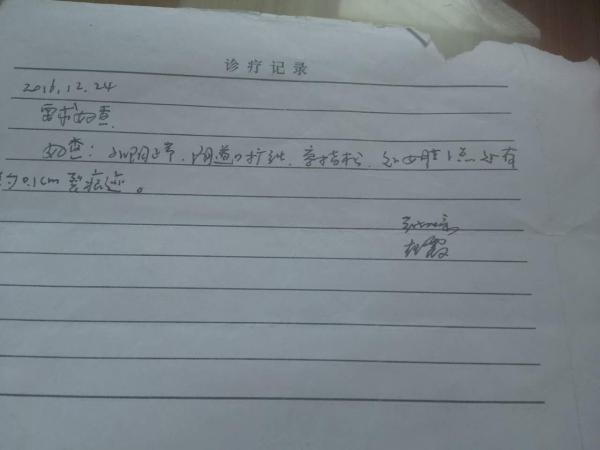 诊疗记录
2016.12.24
要求妇查.
妇查: 外阴正常, 阴道口扩张, 容指松, 处女膜1点处有
约0.1cm裂痕迹。